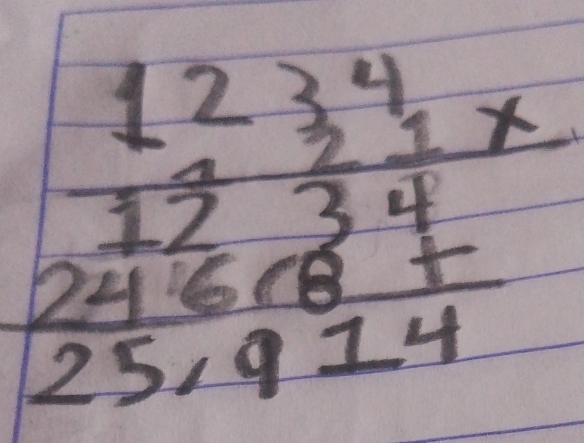 1234
21 ×
1
1234
2468 +
25,914